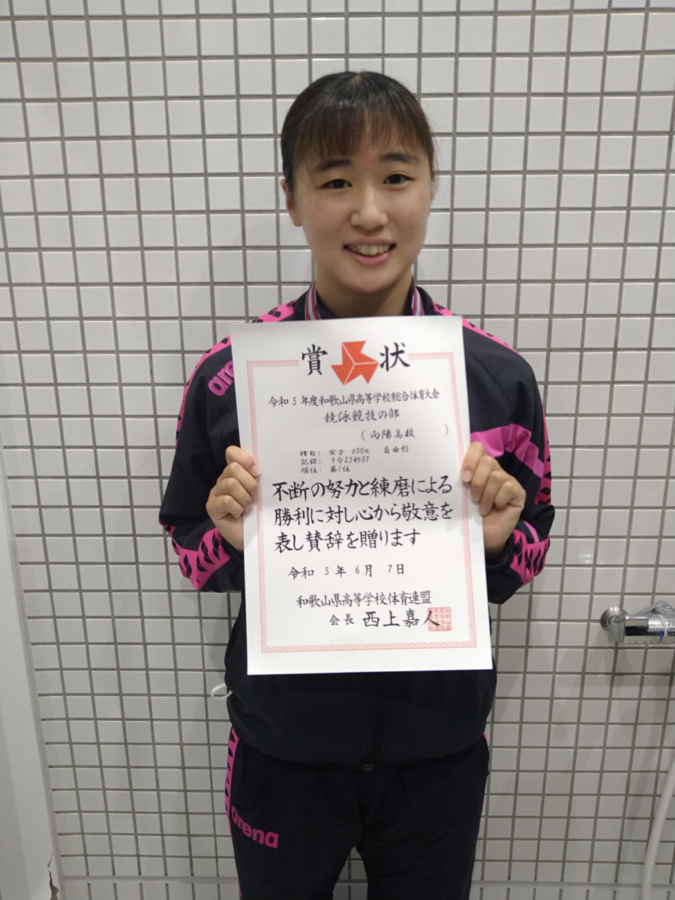 賞状
令和5年度和歌山県高等学校総合体育大会
競泳競技の部
(向陽高校)
種目: 女子 800m 自由形
記録: 9分23秒87
順位: 第1位
不断の努力と練磨による
勝利に対し心から敬意を
表し賛辞を贈ります
令和 5年 6月 7日
和歌山県高等学校体育連盟
会長 西上嘉人
arena
arena